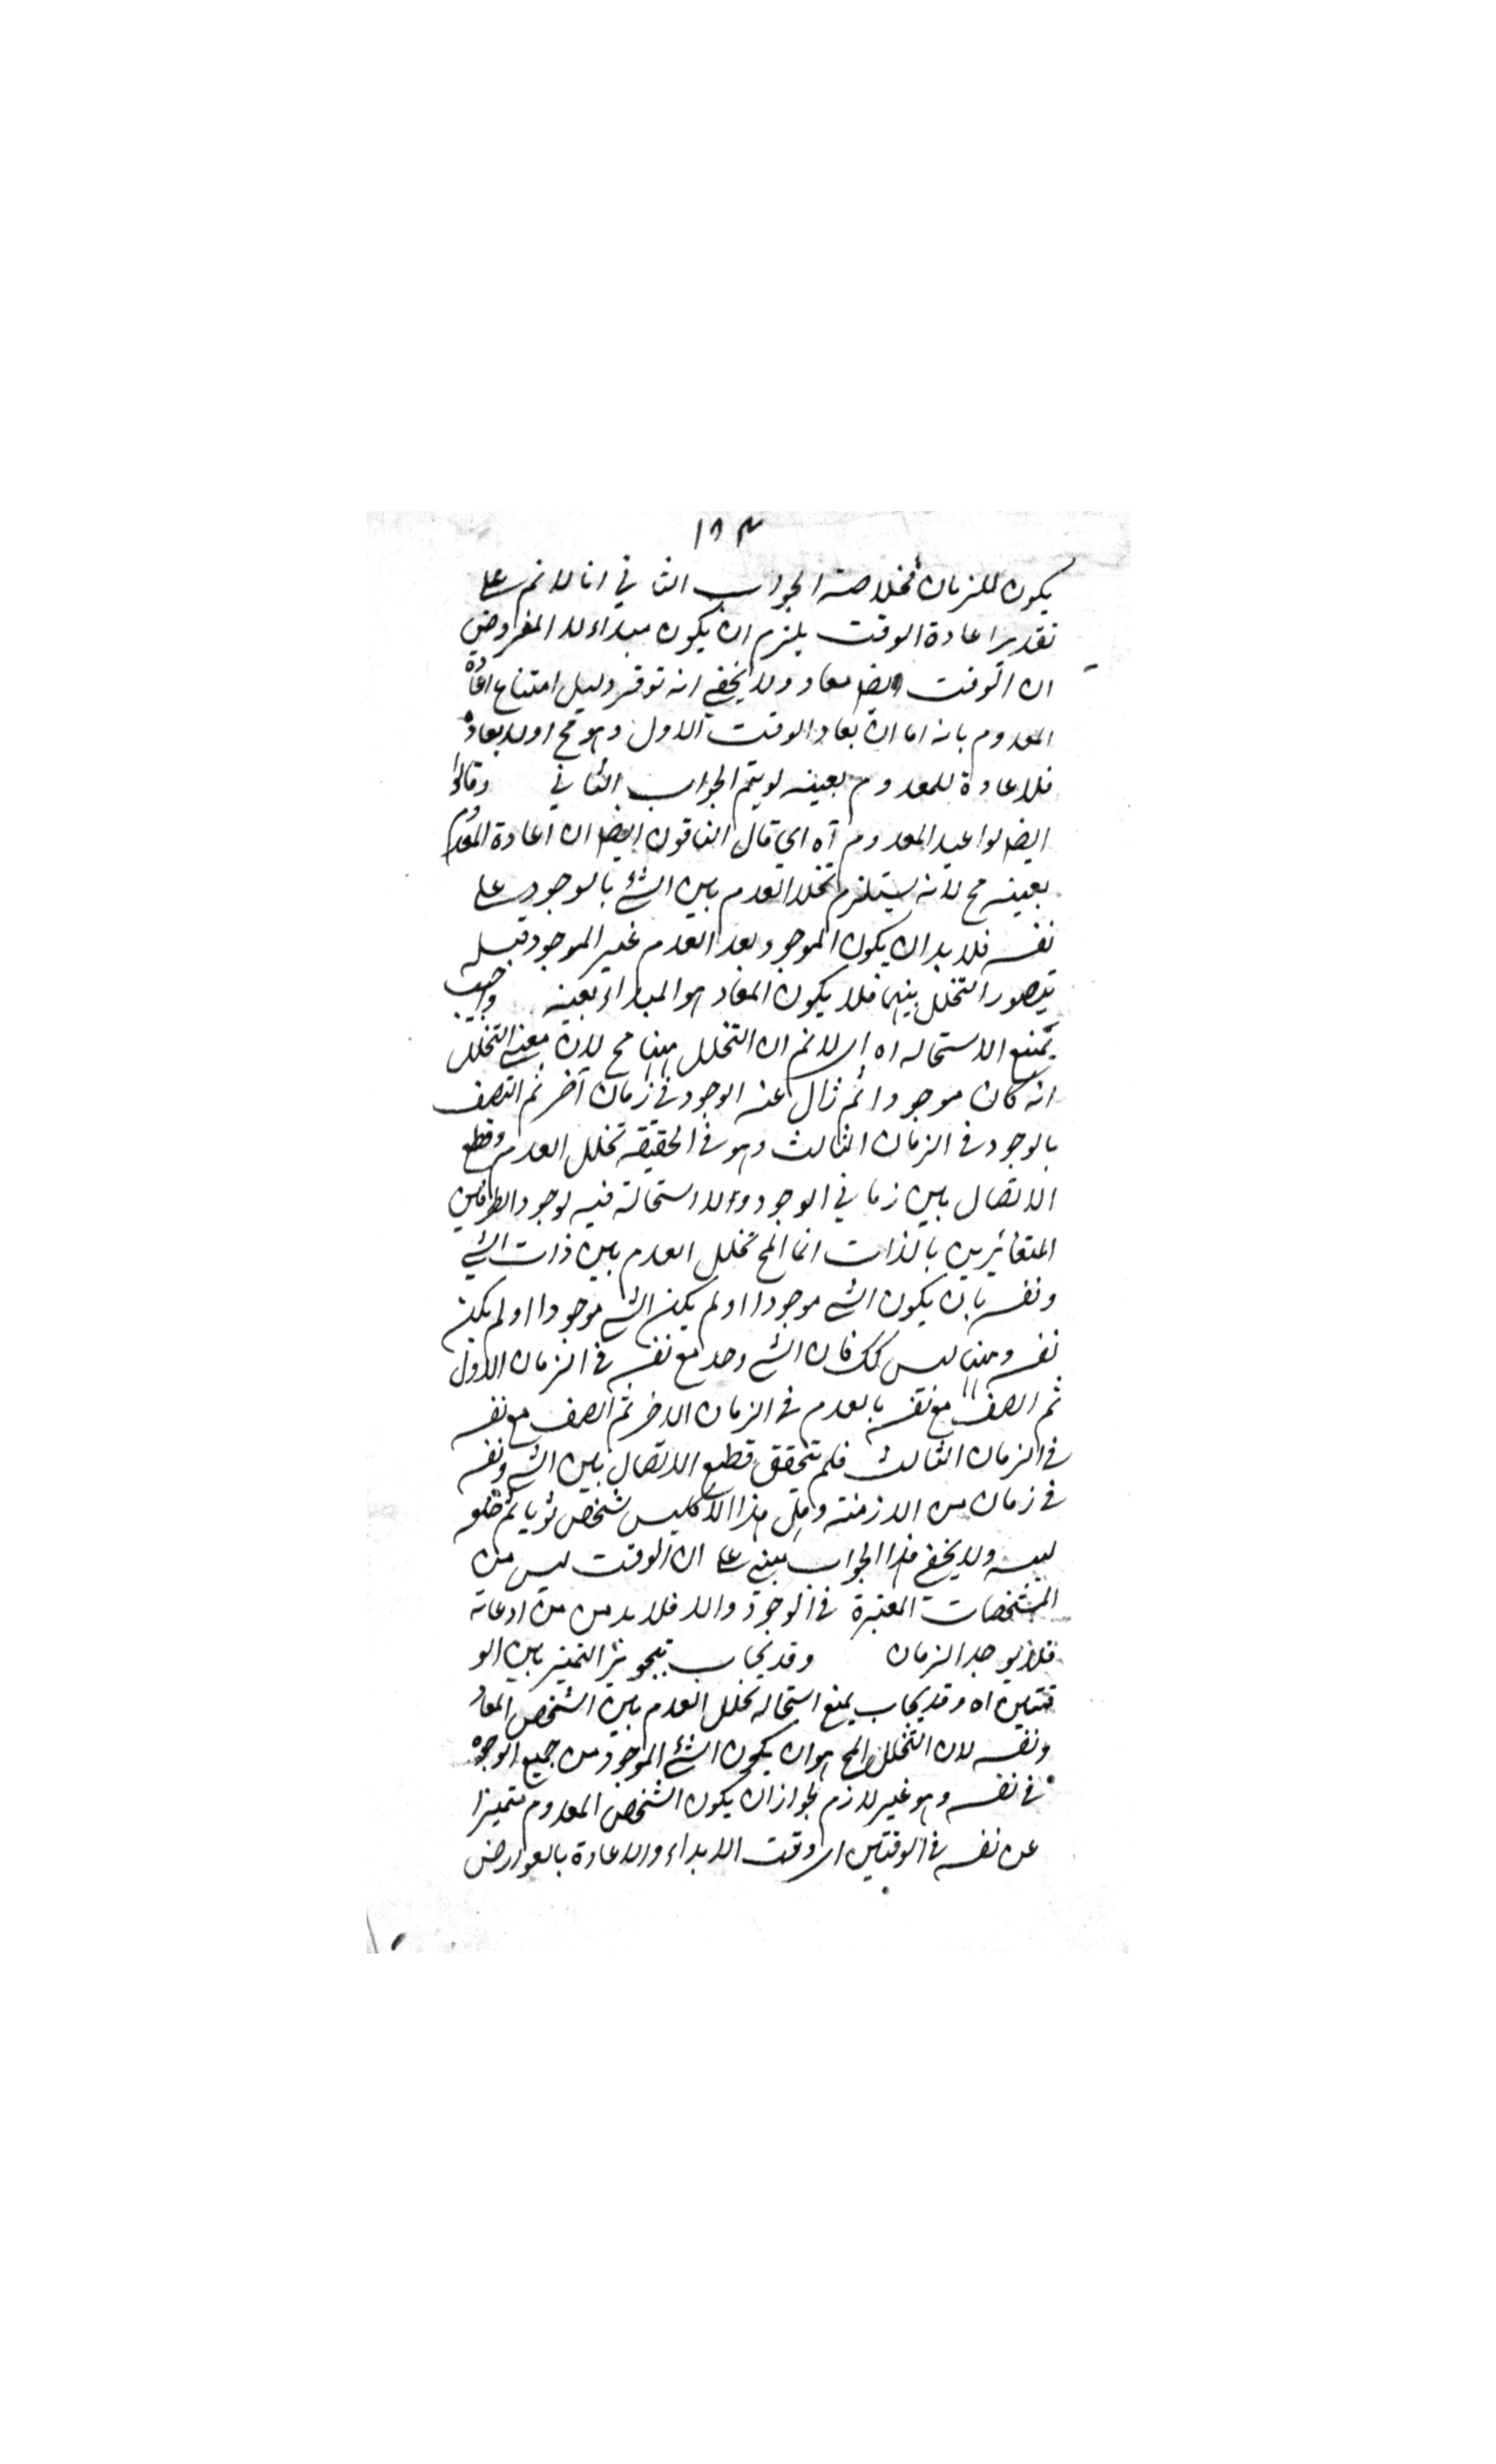 ١٨٣
يكون للزمان فخلاصة الجواب الثاني انا لا نم على
تقدير اعادة الوقت يلزم ان يكون مبداء لا المفروض
ان الوقت ايضا معاد ولا يخفى انه لو قرر دليل امتناع اعادة
المعدوم بانه اما ان يعاد الوقت الاول وهو مح اولا يعاد
فلا اعادة للمعدوم بعينه لو يتم الجواب الثاني وقالوا
ايضا لو اعيد المعدوم آه اي قال النافون ايضا ان اعادة المعدوم
بعينه مح لانه يستلزم تخلل العدم بين الشئ بالوجود على
نفسه فلا بد ان يكون الموجود بعد العدم غير الموجود قبله
يتصور التخلل بينهما فلا يكون المعاد هو المبداء بعينه واجيب
بمنع الاستحاله اه اى لا نم ان التخلل هنا مح لان معنى التخلل
انه كان موجودا ثم زال عنه الوجود في زمان آخر ثم اتصف
بالوجود في الزمان الثالث وهو في الحقيقة تخلل العدم وقطع
الاتصال بين زماني الوجود ولا استحالة فيه لوجود الطرفين
المتغائرين بالذات انما المح تخلل العدم بين ذات الشئ
ونفسه بان يكون الشئ موجودا ولم يكن الشئ موجودا ولم يكن
نفسه وهنا ليس كك فان الشئ وجد مع نفسه في الزمان الاول
ثم اتصف مع نفسه بالعدم في الزمان الاخر ثم اتصف مع نفسه
في الزمان الثالث فلم يتحقق قطع الاتصال بين الشئ ونفسه
في زمان من الازمنة وهل هذا الا كلبس شخص ثوبا ثم خلعه
لبسه ولا يخفى هذا الجواب مبنى على ان الوقت ليس من
المشخصات المعتبرة في الوجود والا فلا بد من اعادته
فلا يوجد الزمان وقد يجاب بتجويز التميز بين الو
قتين اه وقد يجاب بمنع استحاله تخلل العدم بين الشخص المعاد
ونفسه لان التخلل المح هو ان يكون الشئ الموجود من جميع الوجوه
في نفسه وهو غير لازم لجواز ان يكون الشخص المعدوم متميزا
عن نفسه في الوقتين اى وقت الابداء والاعادة بالعوارض